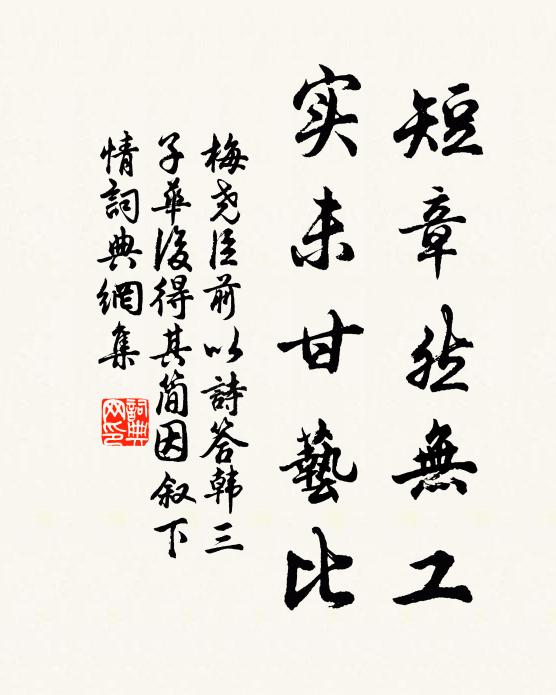 短章然無工
实未甘藝比
梅尧臣前以詩答韩三
子華後得其简因叙下
情詞典網集
詞典网印